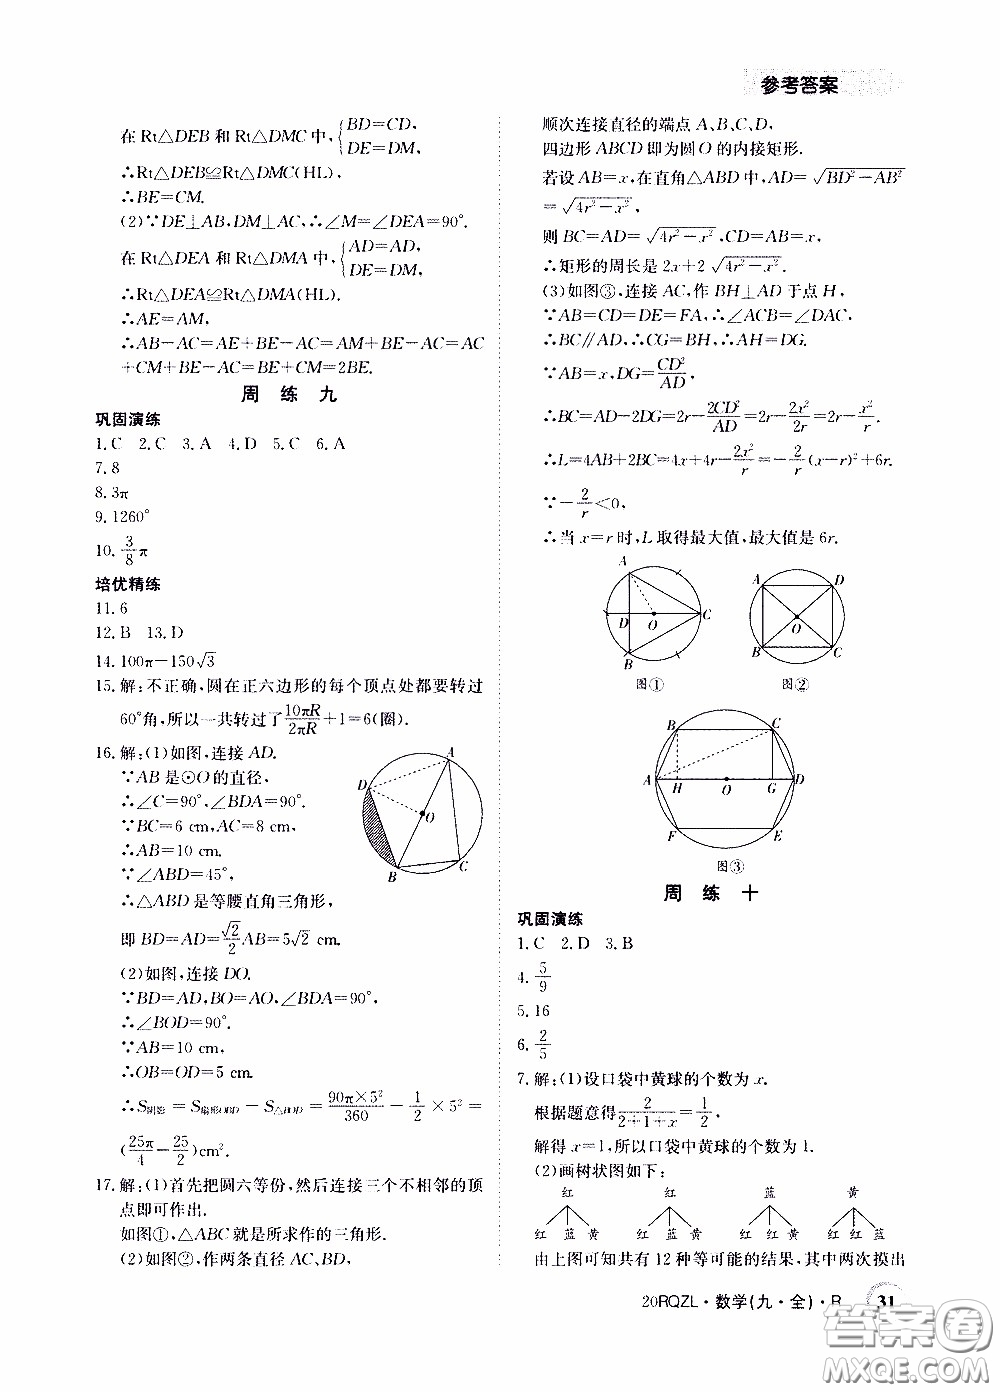 参考答案
在Rt△DEB和Rt△DMC中,{BD=CD, DE=DM,
∴Rt△DEB≌Rt△DMC(HL),
∴BE=CM.
(2)∵DE⊥AB,DM⊥AC,∴∠M=∠DEA=90°.
在Rt△DEA和Rt△DMA中,{AD=AD, DE=DM,
∴Rt△DEA≌Rt△DMA(HL).
∴AE=AM,
∴AB-AC=AE+BE-AC=AM+BE-AC=AC
+CM+BE-AC=BE+CM=2BE.
周 练 九
巩固演练
1.C 2.C 3.A 4.D 5.C 6.A
7.8
8.3π
9.1260°
10.3/8π
培优精练
11.6
12.B 13.D
14.100π-150√3
15.解:不正确,圆在正六边形的每个顶点处都要转过
60°角,所以一共转过了10πR/2πR+1=6(圈).
16.解:(1)如图,连接AD.
∵AB是⊙O的直径,
∴∠C=90°,∠BDA=90°.
∵BC=6 cm,AC=8 cm,
∴AB=10 cm.
∵∠ABD=45°,
∴△ABD是等腰直角三角形,
即BD=AD=√2/2AB=5√2 cm.
(2)如图,连接DO.
∵BD=AD,BO=AO,∠BDA=90°,
∴∠BOD=90°.
∵AB=10 cm,
∴OB=OD=5 cm.
∴S阴影=S扇形OBD-S△BOD=90π×5²/360-1/2×5²=
(25π/4-25/2)cm².
A
D
O
B
C
17.解:(1)首先把圆六等份,然后连接三个不相邻的顶
点即可作出.
如图①,△ABC就是所求作的三角形.
(2)如图②,作两条直径AC,BD,
顺次连接直径的端点A、B、C、D,
四边形ABCD即为圆O的内接矩形.
若设AB=x,在直角△ABD中,AD=√(BD²-AB²)
=√(4r²-x²),
则BC=AD=√(4r²-x²),CD=AB=x,
∴矩形的周长是2x+2√(4r²-x²).
(3)如图③,连接AC,作BH⊥AD于点H,
∵AB=CD=DE=FA,∴∠ACB=∠DAC.
∴BC∥AD,∴CG=BH,∴AH=DG.
∵AB=x,DG=CD²/AD,
∴BC=AD-2DG=2r-2CD²/AD=2r-2x²/2r=2r-x²/r.
∴L=4AB+2BC=4x+4r-2x²/r=-2/r(x-r)²+6r.
∵-2/r<0,
∴当x=r时,L取得最大值,最大值是6r.
A
D O C
B
图①
A D
O
B C
图②
B C
A H O G D
F E
图③
周 练 十
巩固演练
1.C 2.D 3.B
4.5/9
5.16
6.2/5
7.解:(1)设口袋中黄球的个数为x.
根据题意得2/(2+1+x)=1/2,
解得x=1,所以口袋中黄球的个数为1.
(2)画树状图如下:
红 红 蓝 黄
红 蓝 黄 红 蓝 黄 红 红 黄 红 红 蓝
由上图可知共有12种等可能的结果,其中两次摸出
20RQZL·数学(九·全)·R 31
答案圈
MXQE.COM